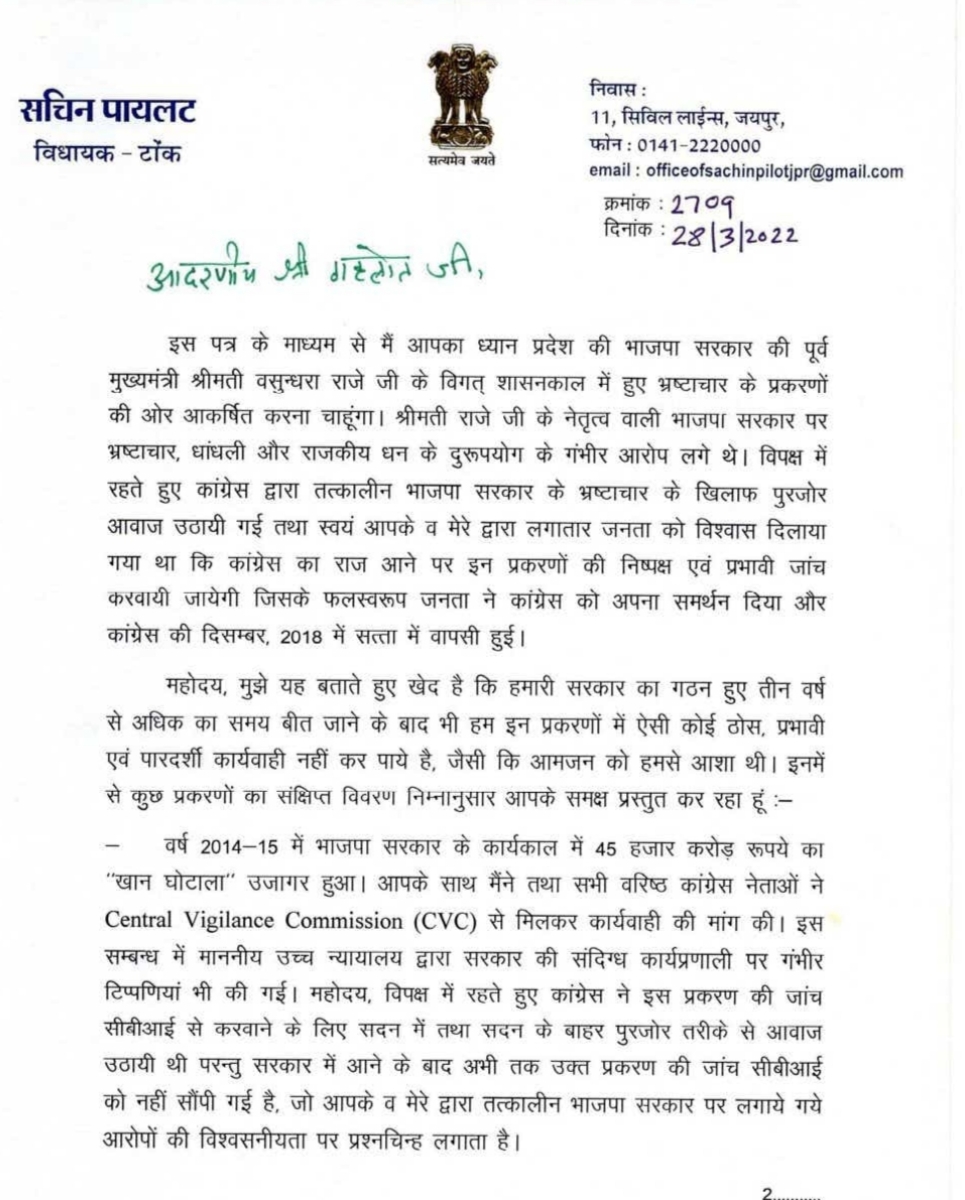 सचिन पायलट
विधायक - टोंक
सत्यमेव जयते
निवास :
11, सिविल लाईन्स, जयपुर,
फोन : 0141-2220000
email : officeofsachinpilotjpr@gmail.com
क्रमांक : 2709
दिनांक : 28/3/2022
आदरणीय श्री गहलोत जी,
इस पत्र के माध्यम से मैं आपका ध्यान प्रदेश की भाजपा सरकार की पूर्व
मुख्यमंत्री श्रीमती वसुन्धरा राजे जी के विगत् शासनकाल में हुए भ्रष्टाचार के प्रकरणों
की ओर आकर्षित करना चाहूंगा। श्रीमती राजे जी के नेतृत्व वाली भाजपा सरकार पर
भ्रष्टाचार, धांधली और राजकीय धन के दुरूपयोग के गंभीर आरोप लगे थे। विपक्ष में
रहते हुए कांग्रेस द्वारा तत्कालीन भाजपा सरकार के भ्रष्टाचार के खिलाफ पुरजोर
आवाज उठायी गई तथा स्वयं आपके व मेरे द्वारा लगातार जनता को विश्वास दिलाया
गया था कि कांग्रेस का राज आने पर इन प्रकरणों की निष्पक्ष एवं प्रभावी जांच
करवायी जायेगी जिसके फलस्वरूप जनता ने कांग्रेस को अपना समर्थन दिया और
कांग्रेस की दिसम्बर, 2018 में सत्ता में वापसी हुई।
महोदय, मुझे यह बताते हुए खेद है कि हमारी सरकार का गठन हुए तीन वर्ष
से अधिक का समय बीत जाने के बाद भी हम इन प्रकरणों में ऐसी कोई ठोस, प्रभावी
एवं पारदर्शी कार्यवाही नहीं कर पाये है, जैसी कि आमजन को हमसे आशा थी। इनमें
से कुछ प्रकरणों का संक्षिप्त विवरण निम्नानुसार आपके समक्ष प्रस्तुत कर रहा हूं :–
– वर्ष 2014–15 में भाजपा सरकार के कार्यकाल में 45 हजार करोड़ रूपये का
"खान घोटाला" उजागर हुआ। आपके साथ मैंने तथा सभी वरिष्ठ कांग्रेस नेताओं ने
Central Vigilance Commission (CVC) से मिलकर कार्यवाही की मांग की। इस
सम्बन्ध में माननीय उच्च न्यायालय द्वारा सरकार की संदिग्ध कार्यप्रणाली पर गंभीर
टिप्पणियां भी की गई। महोदय, विपक्ष में रहते हुए कांग्रेस ने इस प्रकरण की जांच
सीबीआई से करवाने के लिए सदन में तथा सदन के बाहर पुरजोर तरीके से आवाज
उठायी थी परन्तु सरकार में आने के बाद अभी तक उक्त प्रकरण की जांच सीबीआई
को नहीं सौंपी गई है, जो आपके व मेरे द्वारा तत्कालीन भाजपा सरकार पर लगाये गये
आरोपों की विश्वसनीयता पर प्रश्नचिन्ह लगाता है।
2...........